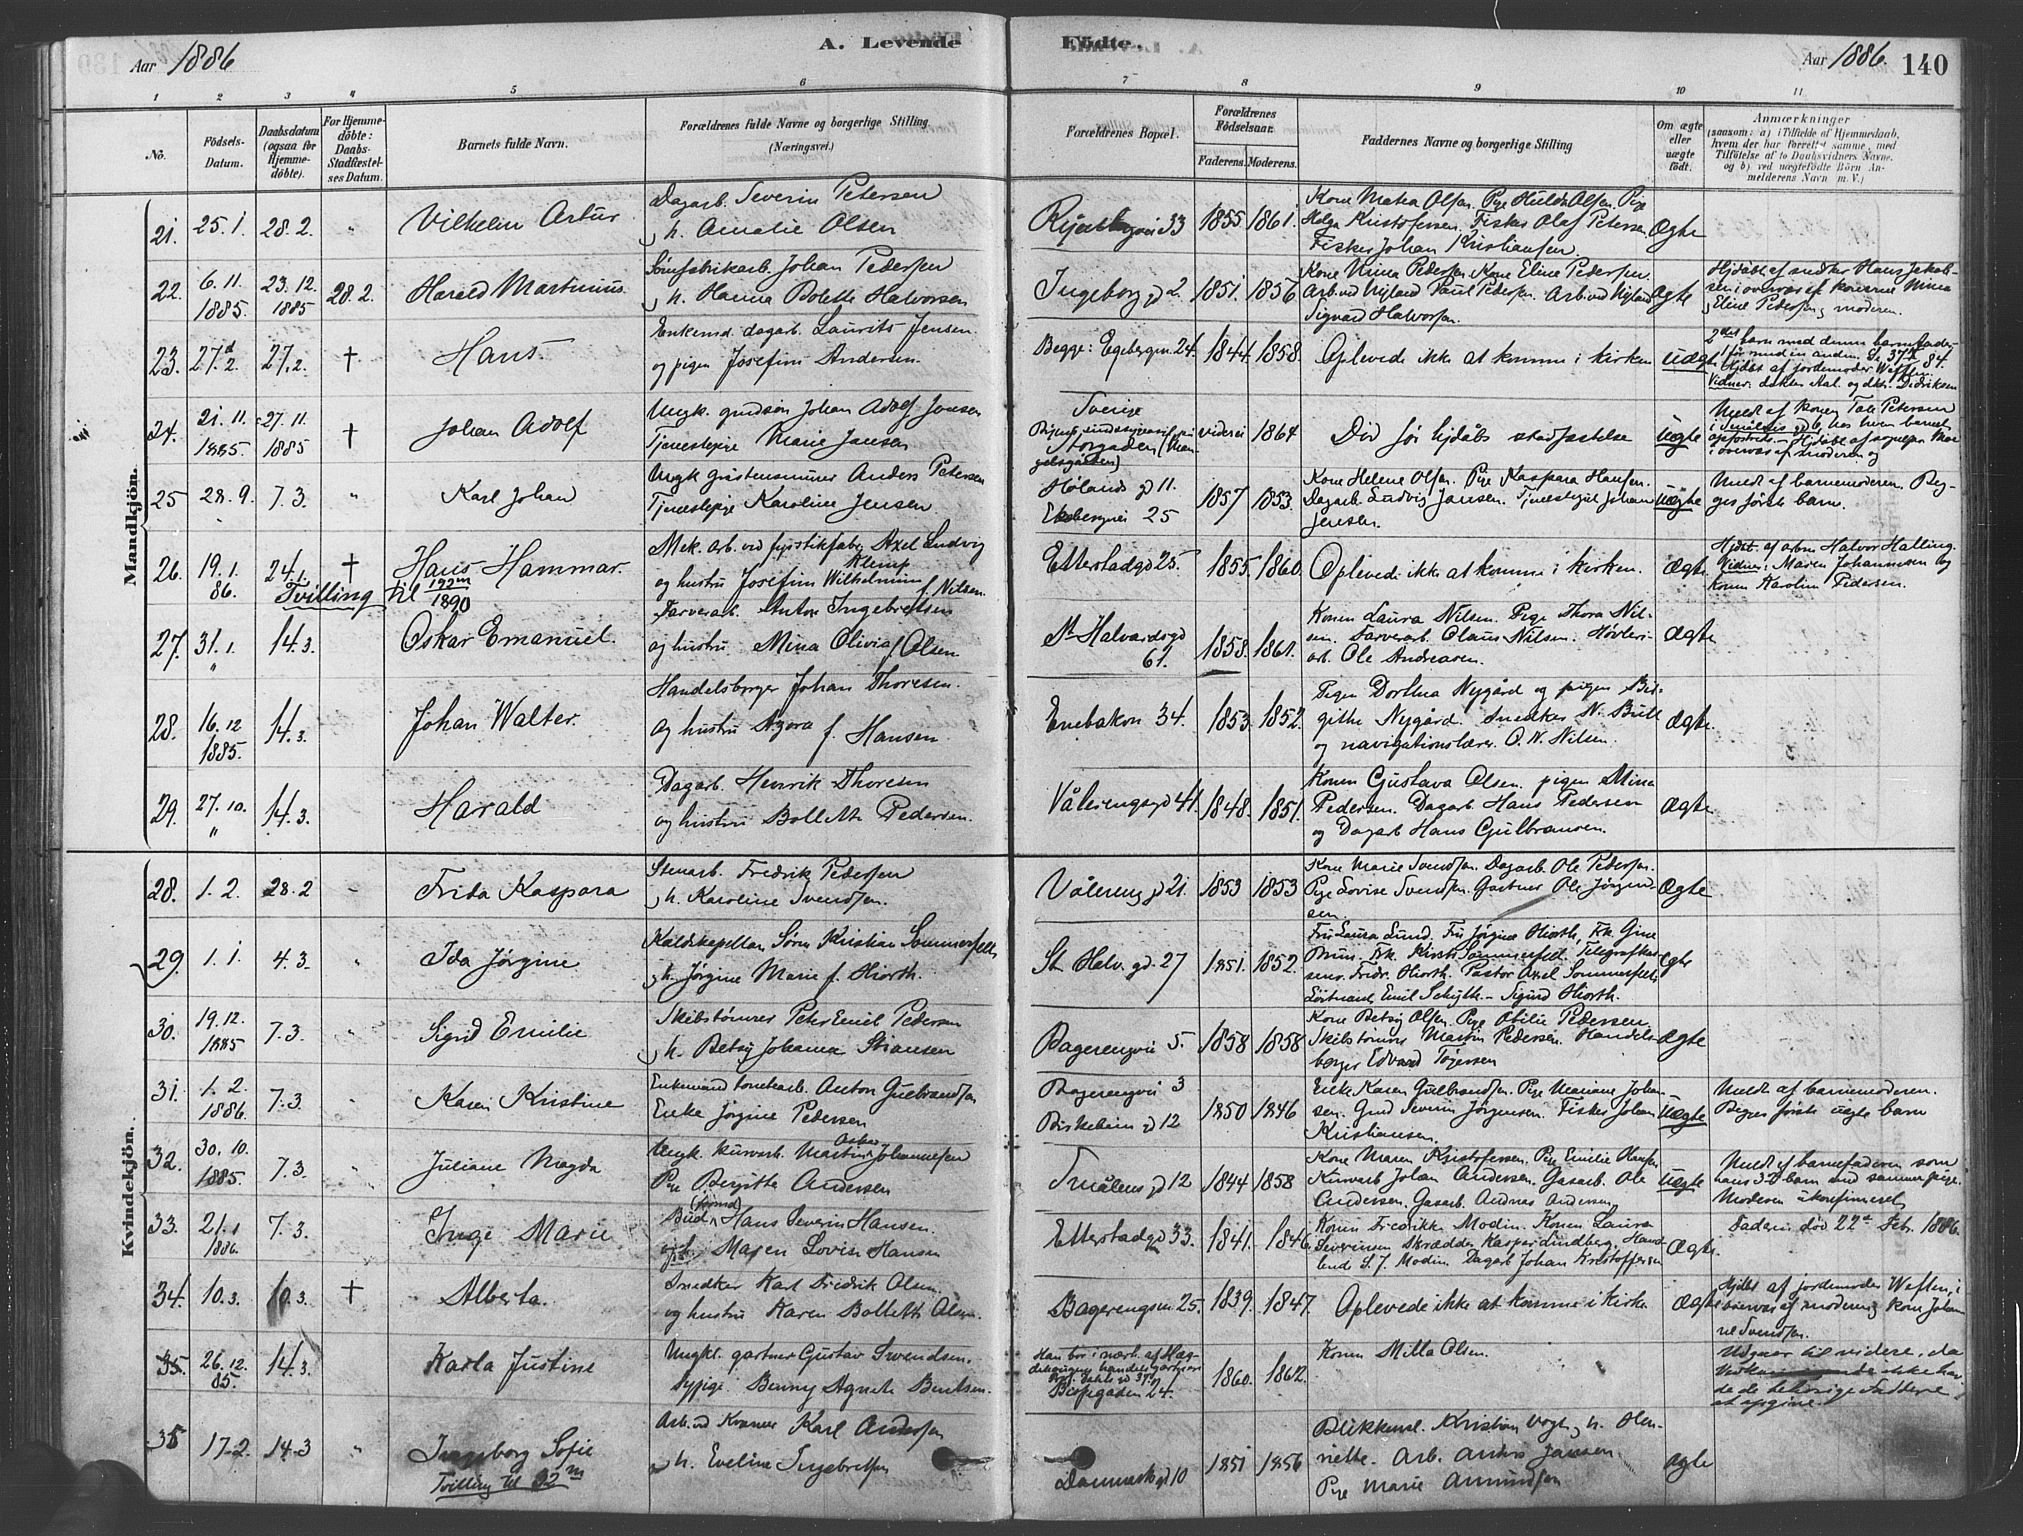 A. Levende Födte.
Aar 1886
Aar 1886. 140
1 2 3 4 5 6 7 8 9 10 11
No.
Födsels-
Datum.
Daabsdatum
(ogsaa for
Hjemme-
döbte).
For Hjemme-
döbte:
Daabs-
Stadfæstel-
ses Datum.
Barnets fulde Navn.
Forældrenes fulde Navne og borgerlige Stilling.
(Næringsvei.)
Forældrenes Bopæl.
Forældrenes
Födselsaar.
Faderens. Moderens.
Faddernes Navne og borgerlige Stilling
Om ægte
eller
uægte
födt.
Anmærkninger
(saasom: a) i Tilfælde af Hjemmedaab,
hvem der har forrettet samme, med
Tilföielse af to Daabsvidners Navne,
og b) ved uægtefödte Börn An-
melderens Navn (m. V.)
Mandkjön.
21. 25. 1. 28. 2. " Vilhelm Artur
Dagarb. Severin Petersen
h. Amalie Olsen
33 1855 1861.
Kone Matea Olsen. Pige Hulda Olsen. Pige
Helga Kristofersen. Fisker Olaf Petersen
Fisker Johan Kristiansen.
Ægte
22. 6. 11. 1885. 23. 12. 1885 28. 2. Harald Martinius.
Sömfabrikarb. Johan Pedersen
h. Hanna Bolette Halvorsen
Ingeborg gd 2. 1851. 1856
Kone Mina Pedersen. Kone Eline Pedersen.
Arb. ved Nyland Paul Pedersen. Arb. ved Nyland
Sigvard Halvorsen
Ægte
Hjdöbt af snedker Hans Jakob-
sen i overvær af konerne Mina
Eline Pedersen og moderen.
23. 27. 2. 27. 2. † Hans.
Enkemd. dagarb. Laurits Jensen
og pigen Josefine Andersen
Begge: Egebergvn 24. 1844. 1858.
Oplevede ikke at komme i kirken uægte
24. 21. 11. 1885. 27. 11. 1885 † Johan Adolf
Ungk. Johan Adolf Jonsen
Tjenestepige Marie Jansen
Sverige
Storgaden
1864
Död för hjdåbs stadfæstelse uægte
25 28. 9. 7. 3. " Karl Johan
Ungk. Anders Petersen
Tjenestepige Karoline Jensen.
Hölands gd 11.
Ekebergvei 25
1857 1853.
Kone Helene Olsen. Pige Kaspara Hansen.
Dagarb. Ludvig Jansen. Johan
Jensen.
uægte
Meldt af barnemoderen. Beg-
ges förste barn.
26. 19. 1. 86. 24. 1. † Hans Hammar.
Tvilling til 122 m 1890
Mek. arb. ved fyrstikfabr. Axel Ludvig Klemp
og hustru Josefine Wilhelmine f. Nilsen.
Etterstadgd 25. 1855. 1860.
Oplevede ikke at komme i kirken. Ægte
Hjdöbt. af arbm. Halvor Halling.
Vidner: Maren Johannesen og
konen Karoline Pedersen.
27. 31. 1. " 14. 3. Oskar Emanuel.
Farverarb. Anton Ingebretsen
og hustru Mina Olivia f. Olsen
St. Halvardsgd 61. 1858. 1861.
Konen Laura Nilsen. Pige Thora Nil-
sen. Farverarb. Claus Nilsen. Hövleri-
arb. Ole Andreasen.
Ægte
28. 16. 12 1885. 14. 3. Johan Walter.
Handelsborger Johan Thoresen.
og hustru f. Hansen.
Enebakvn 34. 1853. 1852.
Pigen Dorthea Nygård og pigen Bir-
githe Nygård. Snedker N. Bull
og navigationslærer O. N. Nilsen.
Ægte.
29. 27. 10. " 14. 3. Harald
Dagarb. Henrik Thoresen
og hustru Bollette Pedersen.
Vålerengsgd 41. 1848. 1851.
Konen Gustava Olsen. pigen Mina
Pedersen. Dagarb. Hans Pedersen
og Dagarb. Hans Gulbransen.
Ægte
Kvindekjön.
28. 1. 2. 28. 2 Frida Kaspara
Stenarb. Fredrik Pedersen
h. Karoline Svendsen.
Våleren gd 21. 1853 1853
Kone Marie Svendsen. Dagarb. Ole Pedersen.
Pige Lovise Svendsen. Gartner Ole Jörgen-
sen.
Ægte
29. 1. 1. 4. 3. " Ida Jörgine
Kaldskapellan Sören Kristian Sommerfelt
h. Jörgine Marie f. Hiorth.
St. Halv. gd 27 1851. 1852.
Fru Laura Lund. Fru Jörgine Hiorth, Frk. Gine
Bruun. Frk. Kirsti Sommerfelt. Telegrafkas-
serer Fridr. Hiorth. Pastor Axel Sommerfelt.
Löitnant Emil Schytte. - Sigurd Hiorth.
Ægte
30. 19. 12. 1885 7. 3. " Sigrid Emilie
Skibstömrer Peter Emil Pedersen
h. Betsy Johanna
Bagerengvei 5. 1858 1858
Kone Betsy Olsen. Pige Otilie Pedersen
Skibstömrer Martin Pedersen. Handels-
borger Edvard
Ægte
31. 1. 2 1886. 7. 3. " Karen Kristine
Enkemand Anton Gulbrandsen
Enke Jörgine Pedersen
Bagerengvei 3
Birkelunn gd 12
1850 1846
Enke Karen Gulbrandsen. Pige Mariane Johan-
sen. Severin Jörgensen. Fisker Johan
Kristiansen.
Uægte
Meldt af barnemoderen.
Begges förste uægte barn
32. 30. 10. 1885. 7. 3. " Juliane Magda
Ungk. kurvarb. Martin Oskar Johannesen
Pige Birgitte Andersen
Smålens gd 12 1844 1858
Kone Maren Kristofersen. Pige Emilie Hansen
Kurvarb. Johan Andersen. Gasarb. Ole
Andersen. Gasarb. Andreas Andersen
Uægte
Meldt af barnefaderen som
hans 3die barn med samme pige.
Moderen ukonfirmeret
33. 21. 1 1886. 7. 3. " Inge Marie
Bud Hans Severin Hansen.
og h. Maren Lovise Hansen
Etterstadgd 33. 1841. 1846.
Konen Fredrikke Modin. Konen Laura
Severinsen. Skrædder Kasper Lindberg. Hand-
lende S. J. Modin. Dagarb. Johan Kristoffersen
Ægte
Faderen död 22de Febr. 1886.
34. 10. 3. 10. 3. † Alberta.
Snedker Karl Fredrik Olsen.
og hustru Karen Bollette Olsen.
Bagerengsvn 25. 1839. 1847.
Oplevede ikke at komme i kirke Ægte
Hjdöbt af jordemoder Weflen, i
overvær af moderen og kone Johan-
ne Svendsen.
35. 26. 12. 85. 14. 3. Karla Justine
Ungkl. gartner Gustav Svendsen.
Sypige. Benny Agnete Bentsen.
24. 1860. 1862.
Konen Milla Olsen.
Udgaar til videre, da
ikke hav-
de de behörige Faddere
at opgive.
35 17. 2. 14. 3 " Ingeborg Sofie
Tvilling til 32 m
Arb. ved Kværner Karl Andersen
h. Eveline Ingebretsen
Danmarksgd 10 1851 1856
Blikkensl. Kristian Vogt, h. Olen-
riette. Arb. Anders Jansen
Pige Marie Amundsen
Ægte